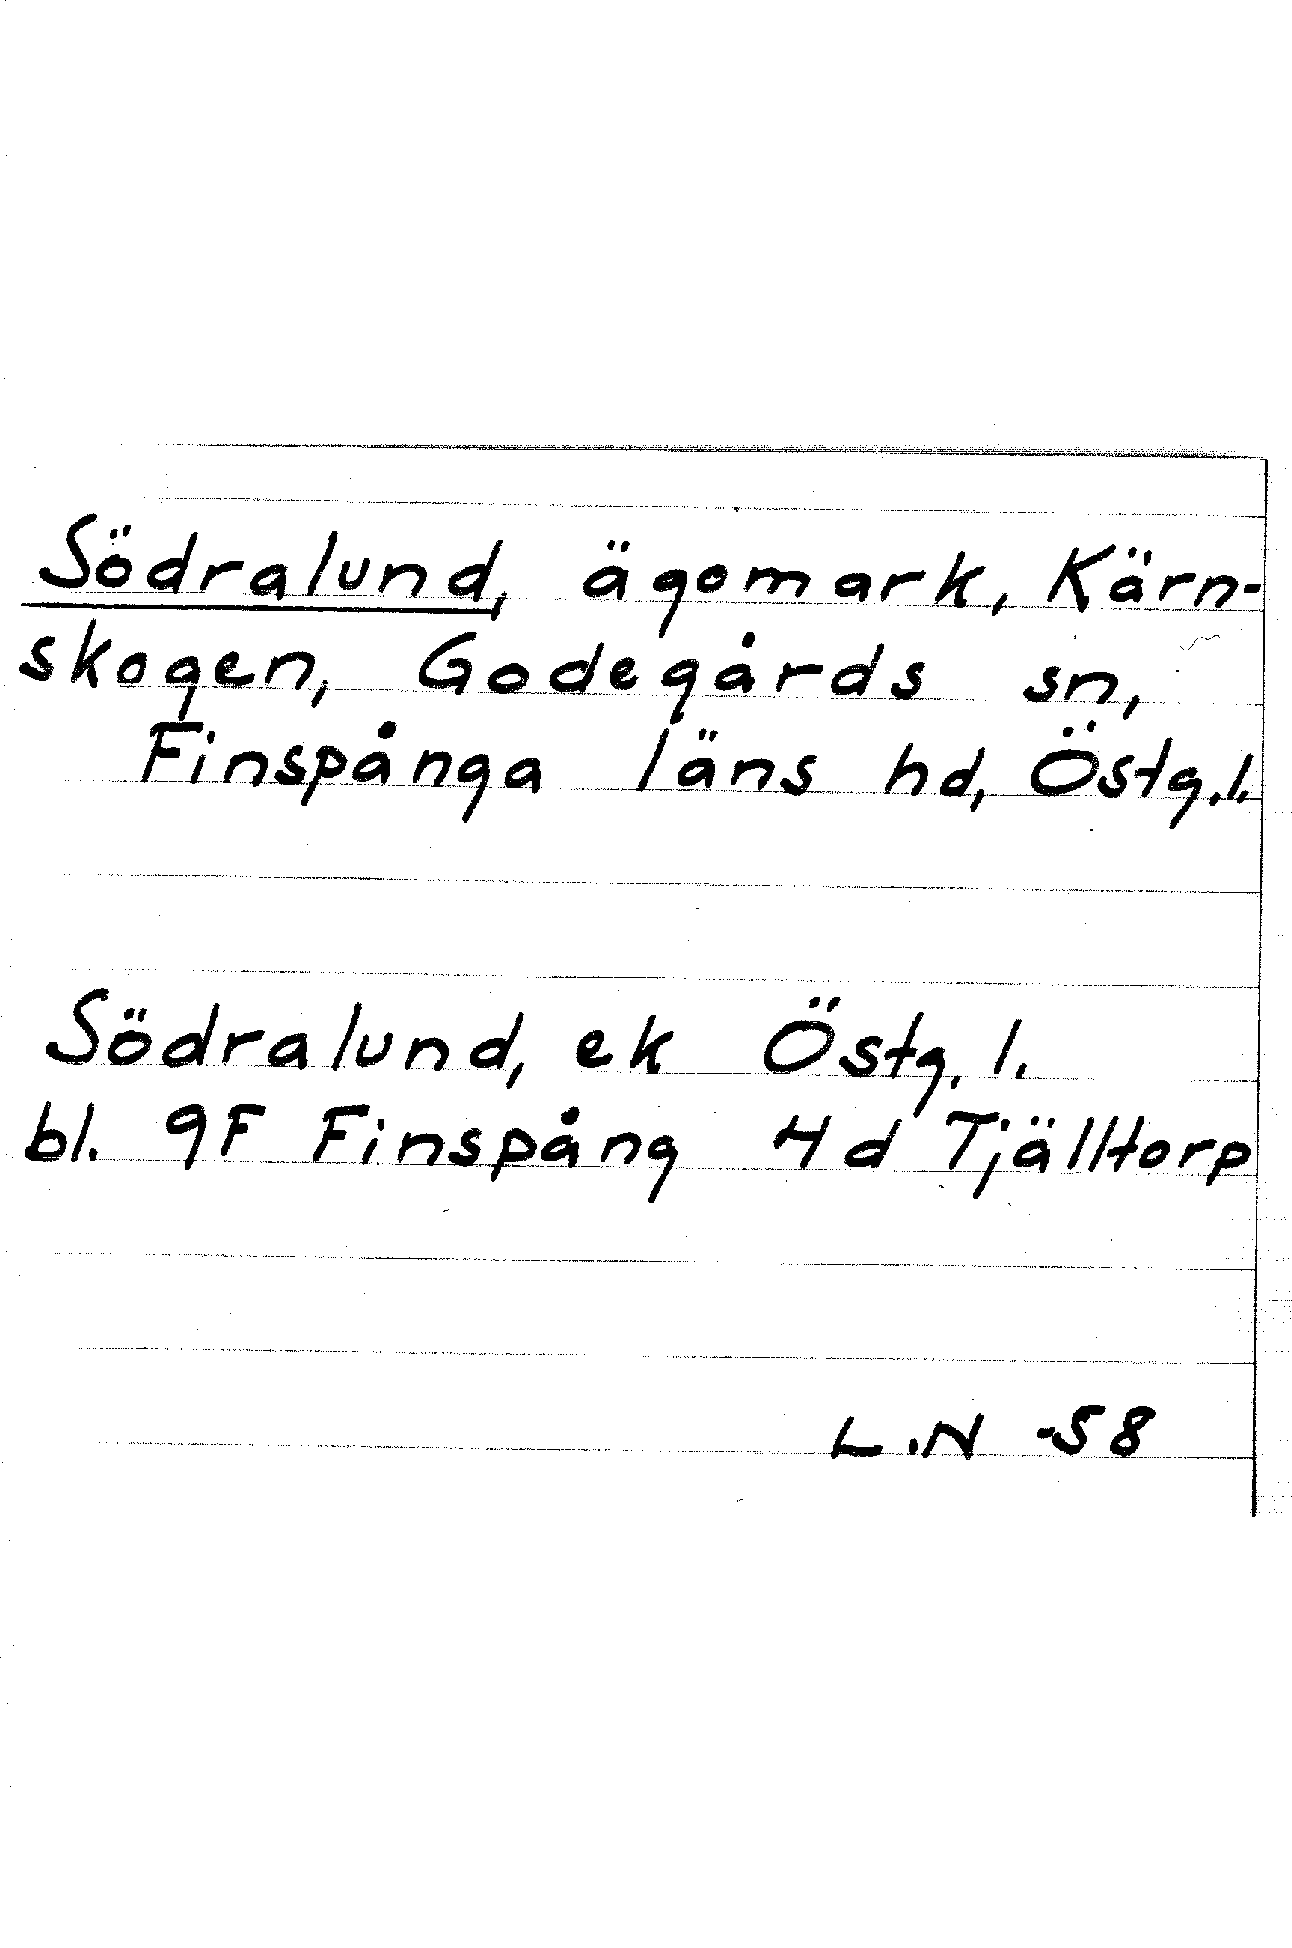 Södralund, ägomark, Kärn-
skogen, Godegårds sn,
Finspånga läns hd, Östg.l.
Södralund, ek Östg. l.
bl. 9F Finspång 4d Tjälltorp
L.N -58